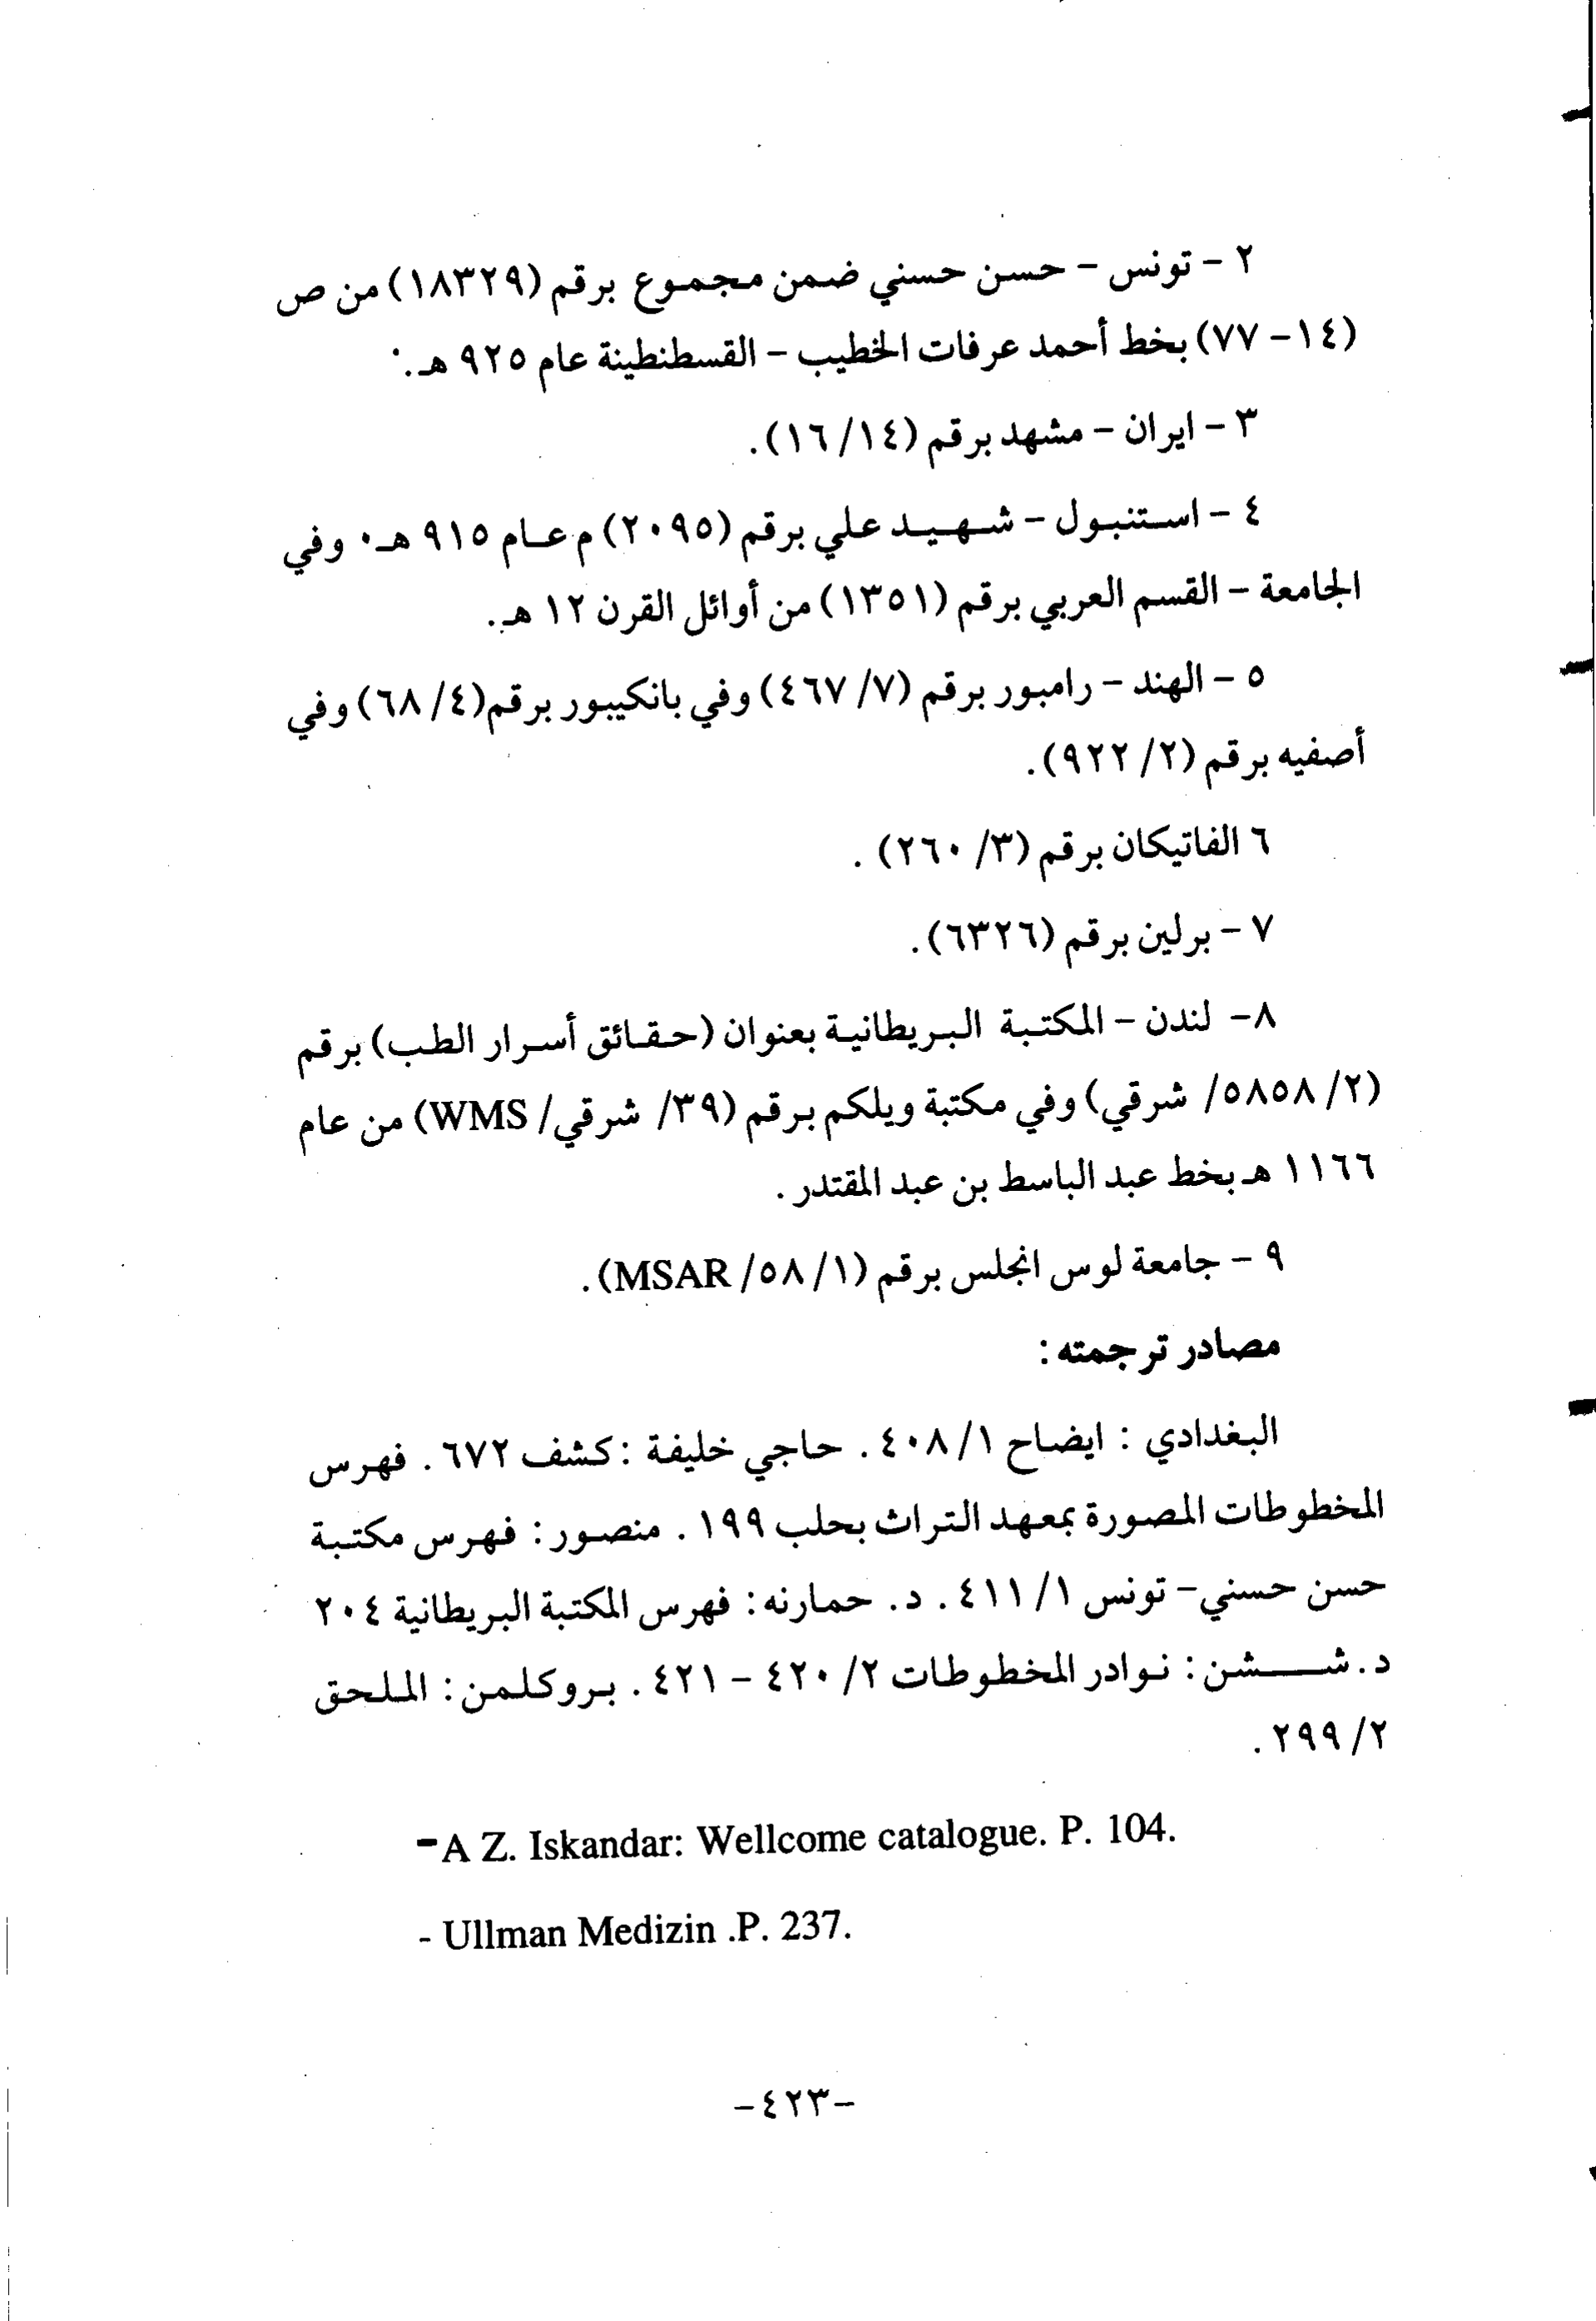 ٢ - تونس - حسن حسني ضمن مجموع برقم (١٨٣٢٩) من ص
(١٤- ٧٧) بخط أحمد عرفات الخطيب - القسطنطينة عام ٩٢٥ هـ.
٣ - ايران - مشهد برقم (١٤/ ١٦).
٤ - استنبول - شهيد علي برقم (٢٠٩٥) م عام ٩١٥ هـ٠ وفي
الجامعة - القسم العربي برقم (١٣٥١) من أوائل القرن ١٢ هـ.
٥ - الهند - رامبور برقم (٧/ ٤٦٧) وفي بانكيبور برقم(٤/ ٦٨) وفي
أصفيه برقم (٢/ ٩٢٢).
٦ الفاتيكان برقم (٣/ ٢٦٠) .
٧ - برلين برقم (٦٣٢٦).
٨- لندن - المكتبة البريطانية بعنوان (حقائق أسرار الطب) برقم
(٢/ ٥٨٥٨/ شرقي) وفي مكتبة ويلكم برقم (٣٩/ شرقي/ WMS) من عام
١١٦٦ هـ بخط عبد الباسط بن عبد المقتدر .
٩ - جامعة لوس انجلس برقم (١/ ٥٨/ MSAR).
مصادر ترجمته :
البغدادي : ايضاح ١/ ٤٠٨ . حاجي خليفة : كشف ٦٧٢ . فهرس
المخطوطات المصورة بمعهد التراث بحلب ١٩٩ . منصور : فهرس مكتبة
حسن حسني- تونس ١/ ٤١١ . د. حمارنه : فهرس المكتبة البريطانية ٢٠٤
د. ششن : نوادر المخطوطات ٢/ ٤٢٠ - ٤٢١ . بروكلمن : الملحق
٢/ ٢٩٩ .
-A Z. Iskandar: Wellcome catalogue. P. 104.
- Ullman Medizin .P. 237.
-٤٢٣-